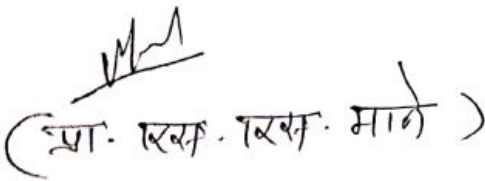 (प्रा. एस. एस. माने)